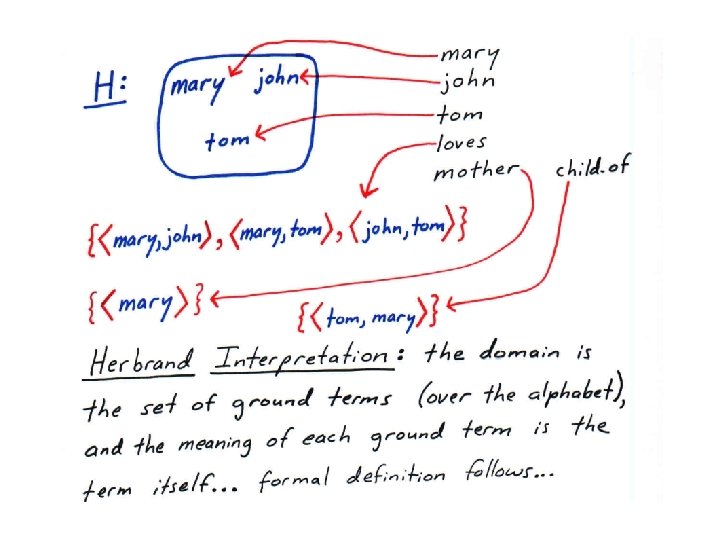 mary
H: mary john
john
tom
tom
loves
mother child-of
{<mary, john>, <mary, tom>, <john, tom>}
{<mary>}
{<tom, mary>}
Herbrand Interpretation: the domain is
the set of ground terms (over the alphabet),
and the meaning of each ground term is the
term itself... formal definition follows...